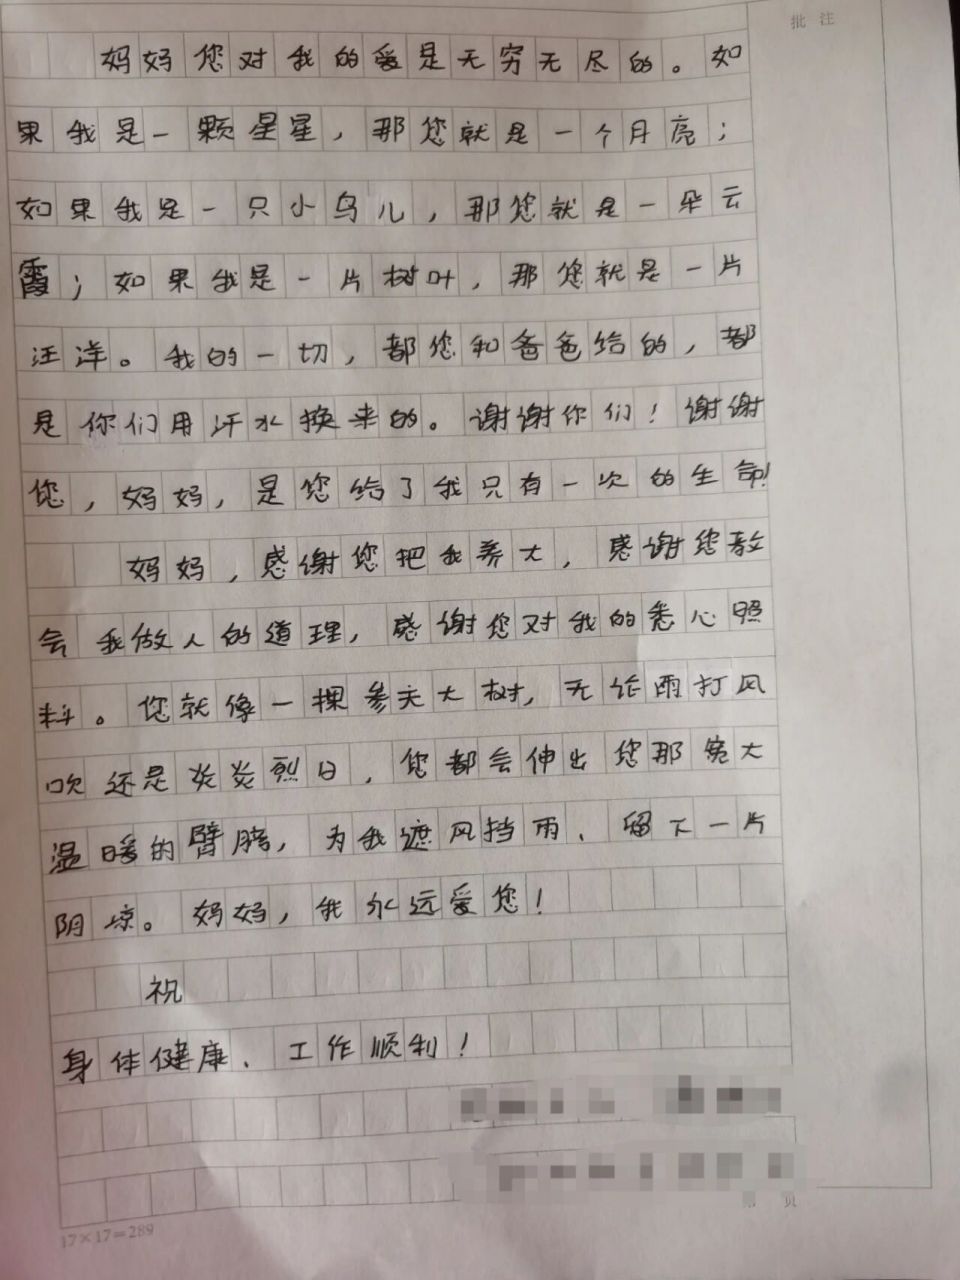 批注
妈妈您对我的爱是无穷无尽的。如
果我是一颗星星，那您就是一个月亮；
如果我是一只小鸟儿，那您就是一朵云
霞；如果我是一片树叶，那您就是一片
汪洋。我的一切，都您和爸爸给的，都
是你们用汗水换来的。谢谢你们！谢谢
您，妈妈，是您给了我只有一次的生命！
妈妈，感谢您把我养大，感谢您教
会我做人的道理，感谢您对我的悉心照
料。您就像一棵参天大树，无论雨打风
吹还是炎炎烈日，您都会伸出您那宽大
温暖的臂膀，为我遮风挡雨、留下一片
阴凉。妈妈，我永远爱您！
祝
身体健康、工作顺利！
第 页
17×17=289